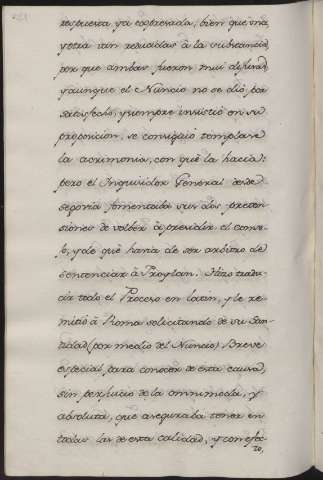 respuesta ya expresada, bien que una,
y otra iàn reducidas à la substancia,
por que ambas fueron mui difusas,
y aunque el Nuncio no se diò por
satisfecho, y siempre insistiò en su
proposicion, se consiguiò templase
la acrimonia, con què la hacia:
pero el Inquisidor General desde
Segovia fomentaba sus dos preten-
siones de volber à presidir el conse-
jo, y de què havia de ser arbitro de
sentenciar à Froylan. Hizo tradu-
cir todo el Proceso en latin, y le re-
mitiò à Roma solicitando de su San-
tidad (por medio del Nuncio) Breve
especial para conocer de esta causa,
sin perjuicio de la omnimoda, y
absoluta, que aseguraba tener en
todas las de esta calidad, y con efec-
to,